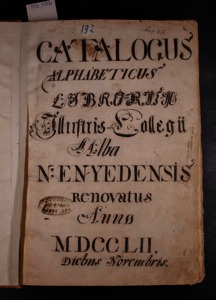 192
CATALOGUS
ALPHABETICUS
LIBRORUM
Illustris Collegii
Alba
N: ENYEDENSIS
Renovatus
Anno
MDCCLII.
Diebus Novembris.